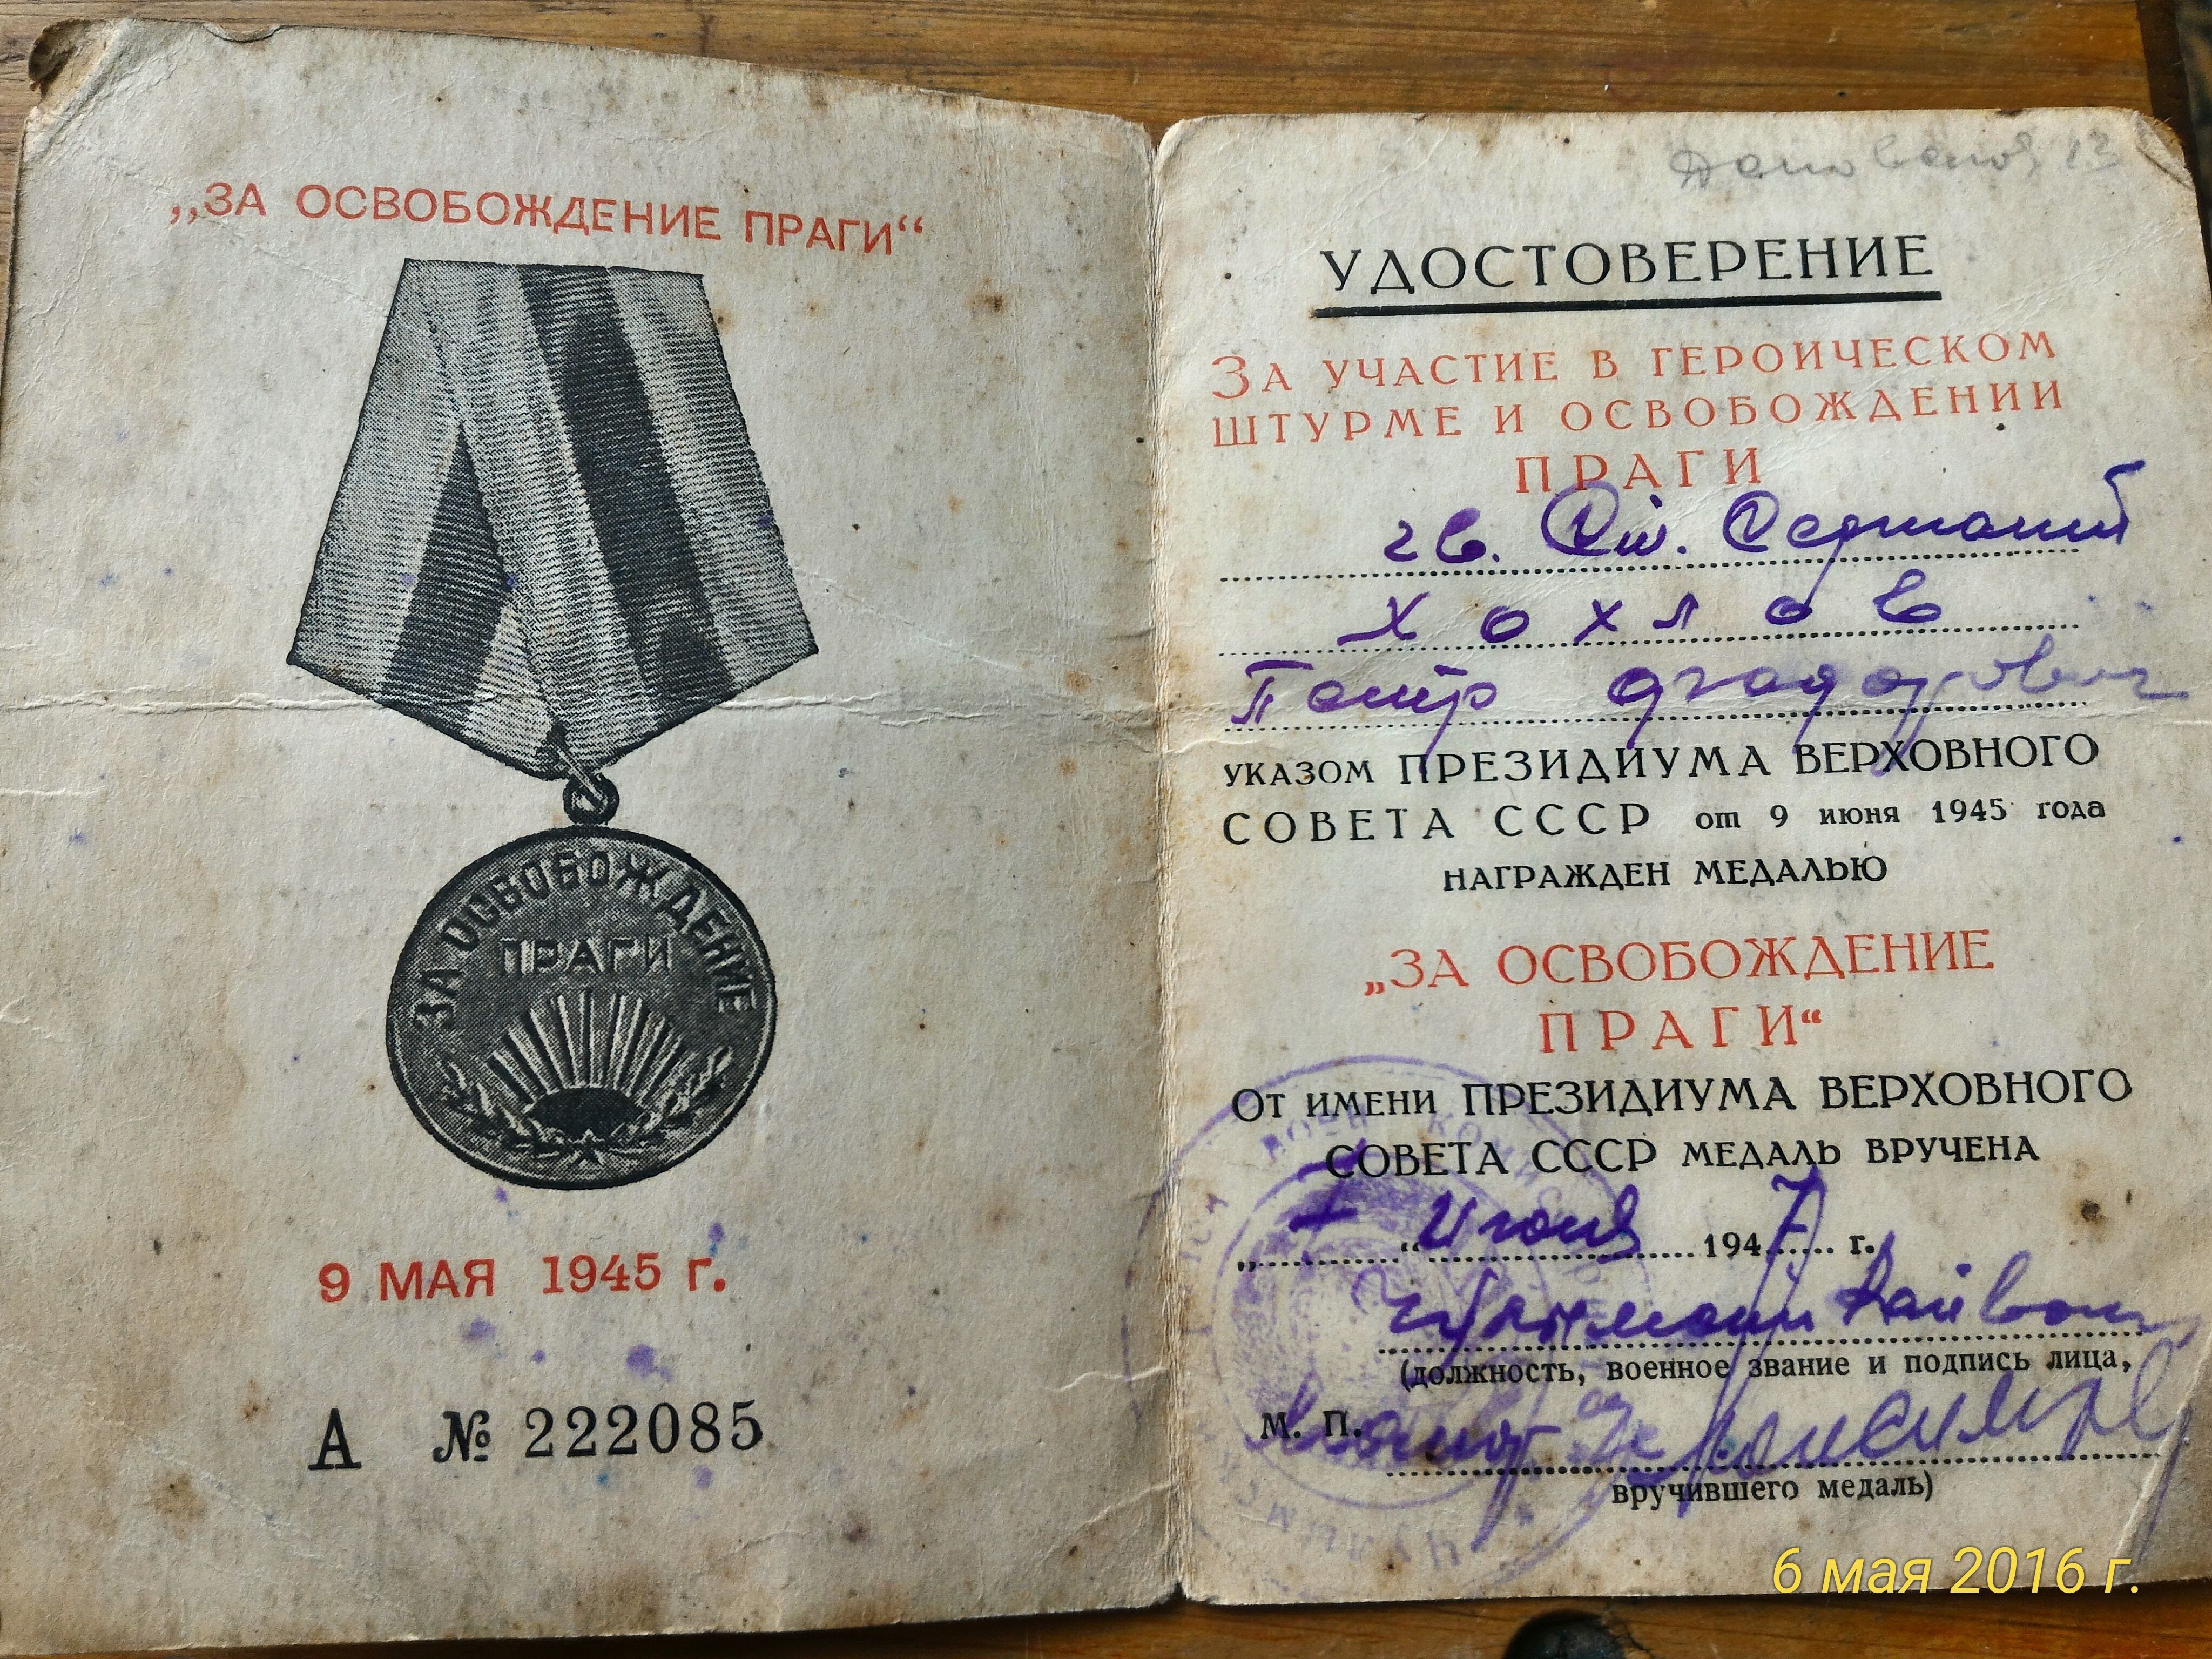 „ЗА ОСВОБОЖДЕНИЕ ПРАГИ“
ЗА ОСВОБОЖДЕНИЕ
ПРАГИ
9 МАЯ 1945 г.
А № 222085
УДОСТОВЕРЕНИЕ
ЗА УЧАСТИЕ В ГЕРОИЧЕСКОМ
ШТУРМЕ И ОСВОБОЖДЕНИИ
ПРАГИ
гв. Ст. Сержант
Хохлов
Петр
УКАЗОМ ПРЕЗИДИУМА ВЕРХОВНОГО
СОВЕТА СССР от 9 июня 1945 года
НАГРАЖДЕН МЕДАЛЬЮ
„ЗА ОСВОБОЖДЕНИЕ
ПРАГИ“
ОТ ИМЕНИ ПРЕЗИДИУМА ВЕРХОВНОГО
СОВЕТА СССР МЕДАЛЬ ВРУЧЕНА
„ “ Июня 1947 г.
(должность, военное звание и подпись лица,
М. П.
вручившего медаль)
6 мая 2016 г.